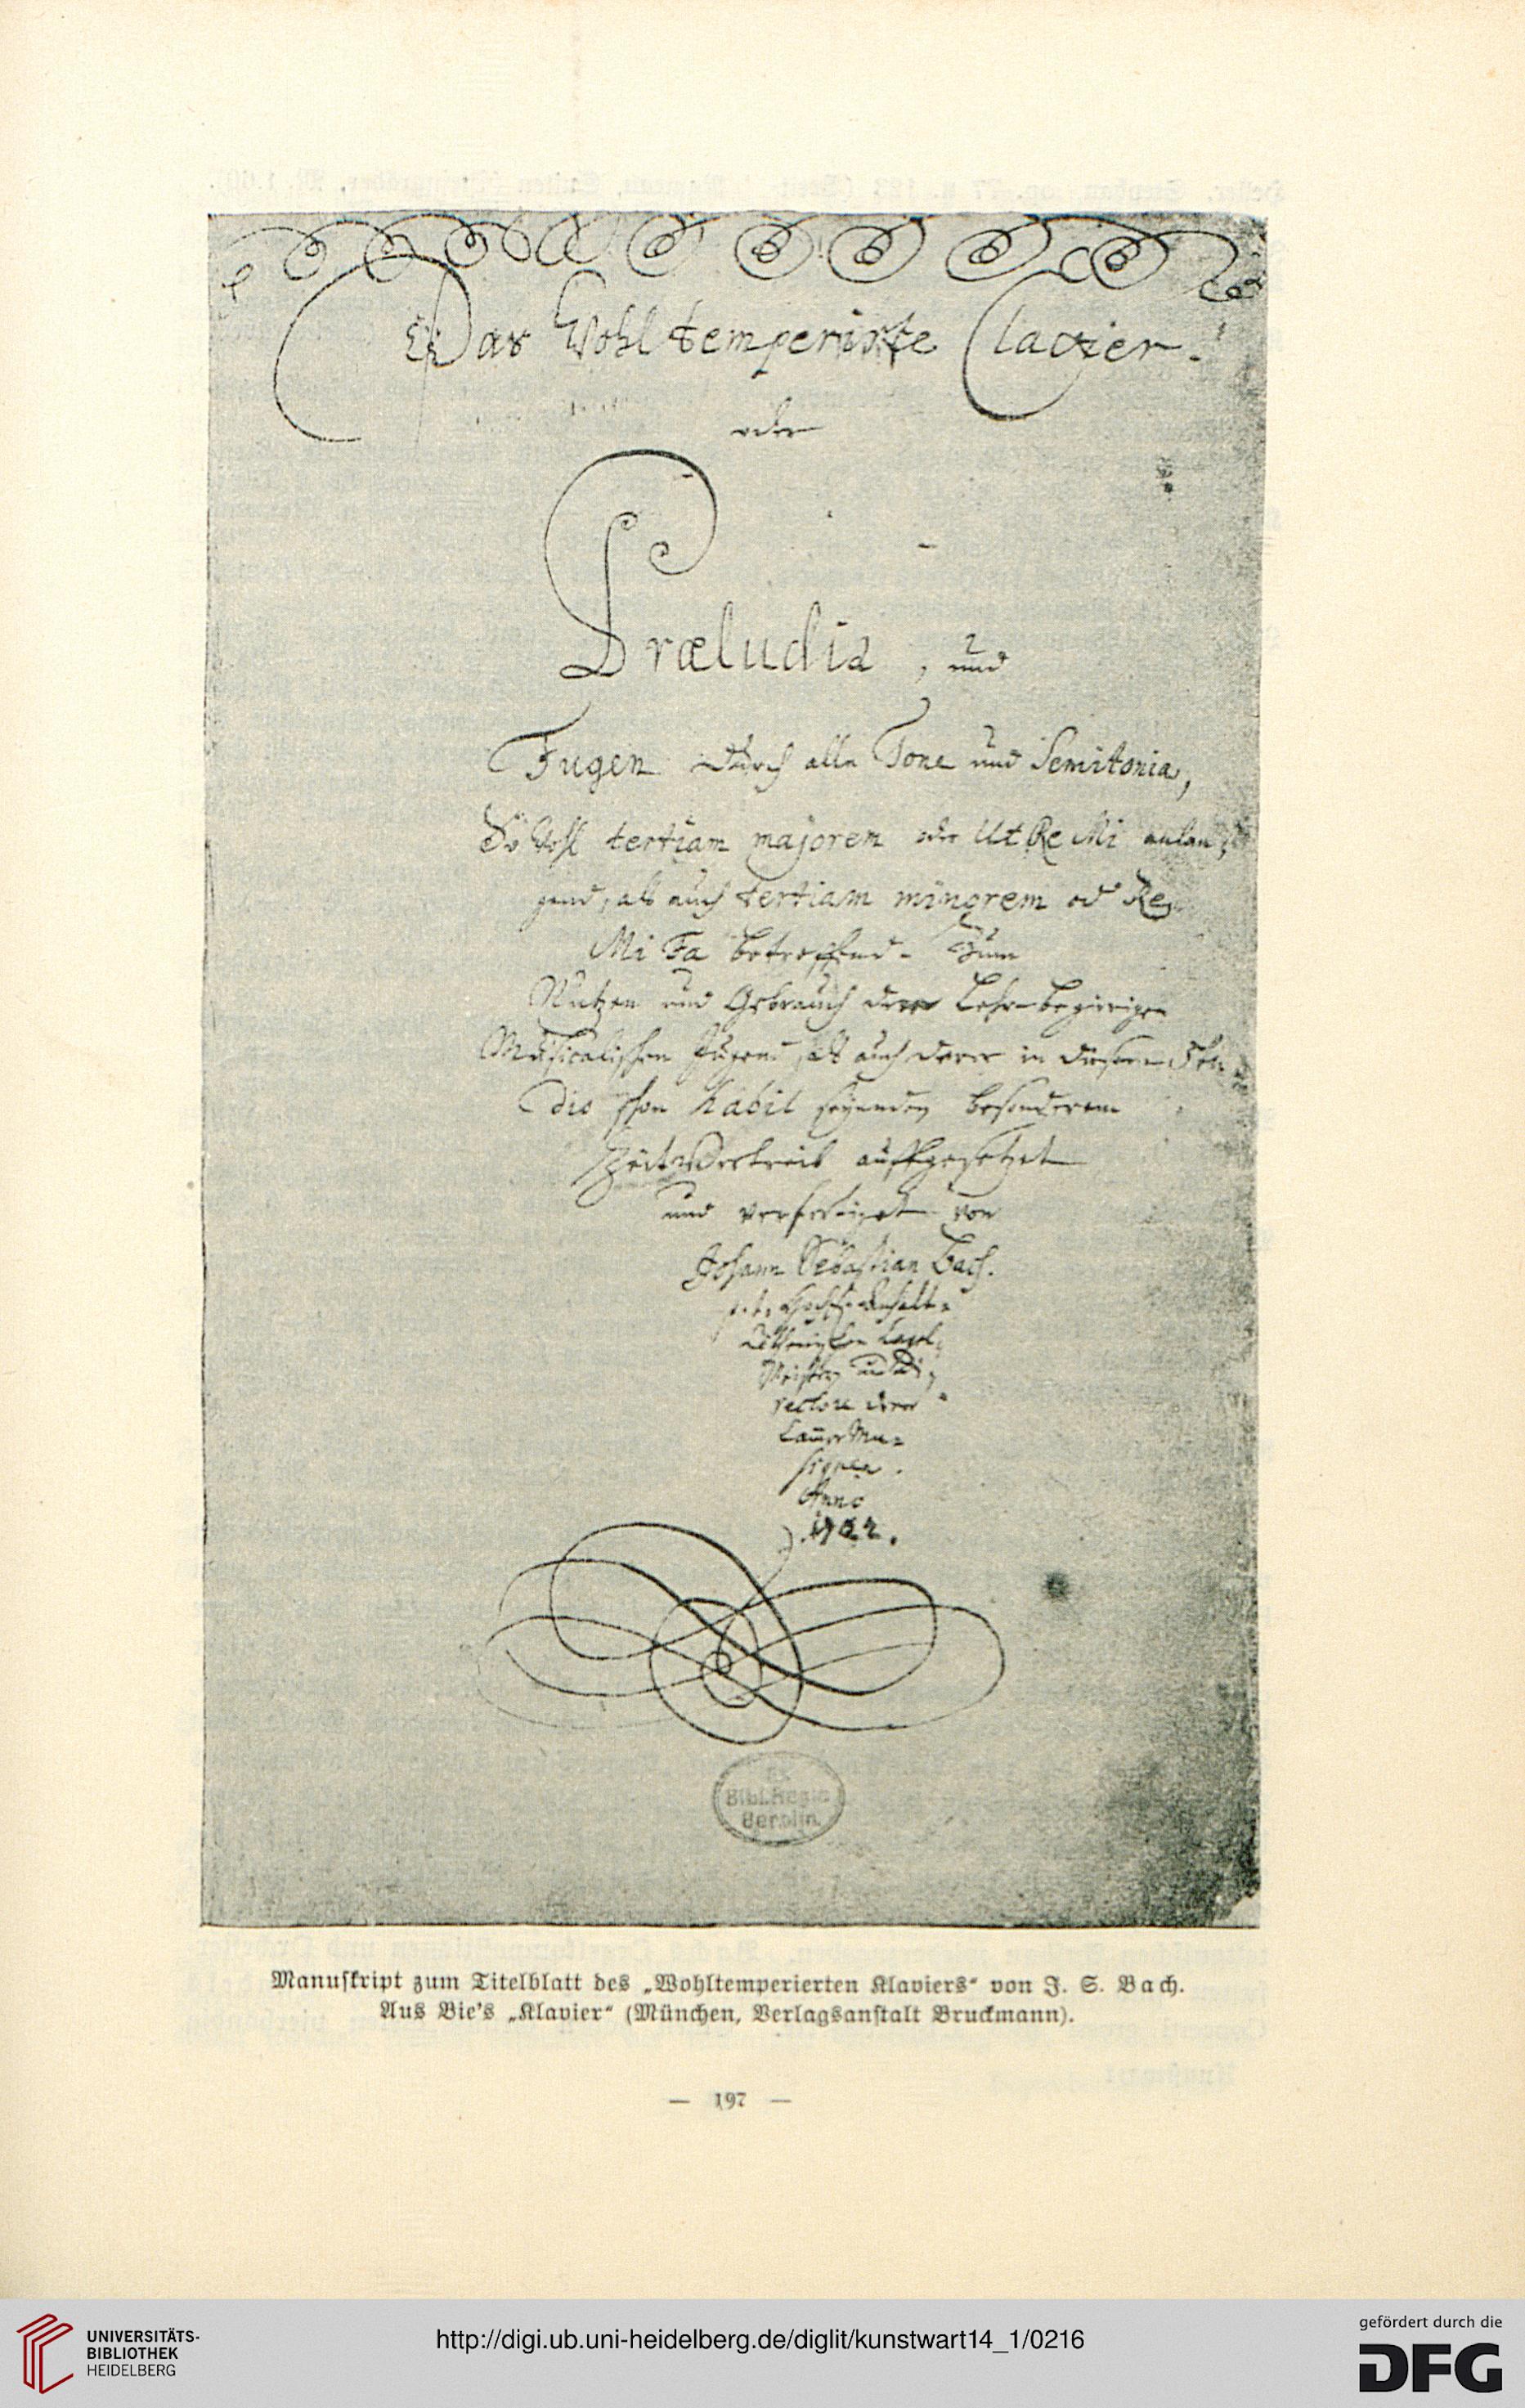 Das Wohltemperirte Clavier.
oder
Præludia, und
Fugen durch alle Tone und Semitonia,
So wohl tertiam majorem oder Ut Re Mi anlan,
gend, als auch tertiam minorem od Re
Mi Fa betreffend. Zum
Nutzen und Gebrauch der Lehr-begierigen
Musicalischen Jugend, als auch derer in diesem Stu
dio schon habil seyenden besonderem
Zeitvertreib auffgesetzet
und verfertiget von
Johann Sebastian Bach.
p. t. Hochf. Anhalt-
Cöthenischen Capel-
Meistern und Di-
rectore derer
Camer Mu-
siquen.
Anno
1722.
Bibl. Regia
Berolin.
Manuſkript zum Titelblatt des „Wohltemperierten Klaviers“ von J. S. Bach.
Aus Bie's „Klavier“ (München, Verlagsanſtalt Bruckmann).
— 197 —
UNIVERSITÄTS-
BIBLIOTHEK
HEIDELBERG
http://digi.ub.uni-heidelberg.de/diglit/kunstwart14_1/0216
gefördert durch die
DFG